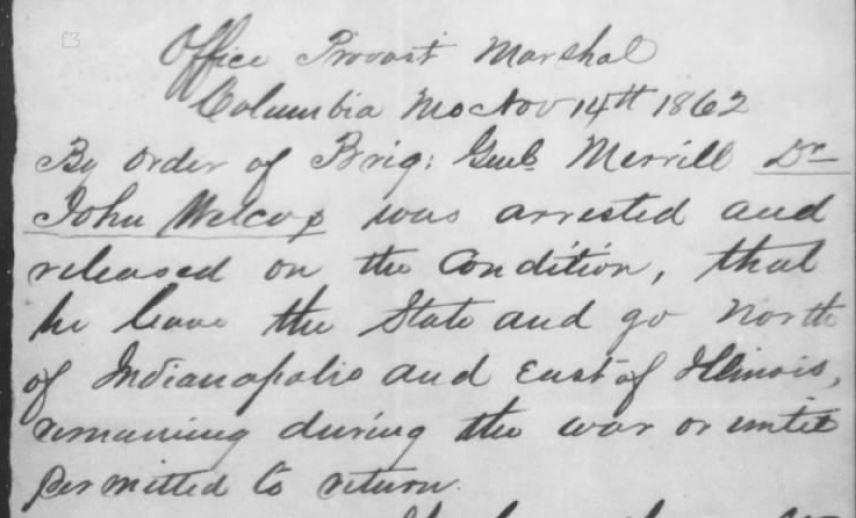 Office Provost Marshal
Columbia Mo Nov 14th 1862
By order of Brig: Genl Merrill Dr
John Welcox was arrested and
released on the condition, that
he leave the State and go north
of Indianapolis and East of Illinois,
remaining during the war or until
permitted to return.